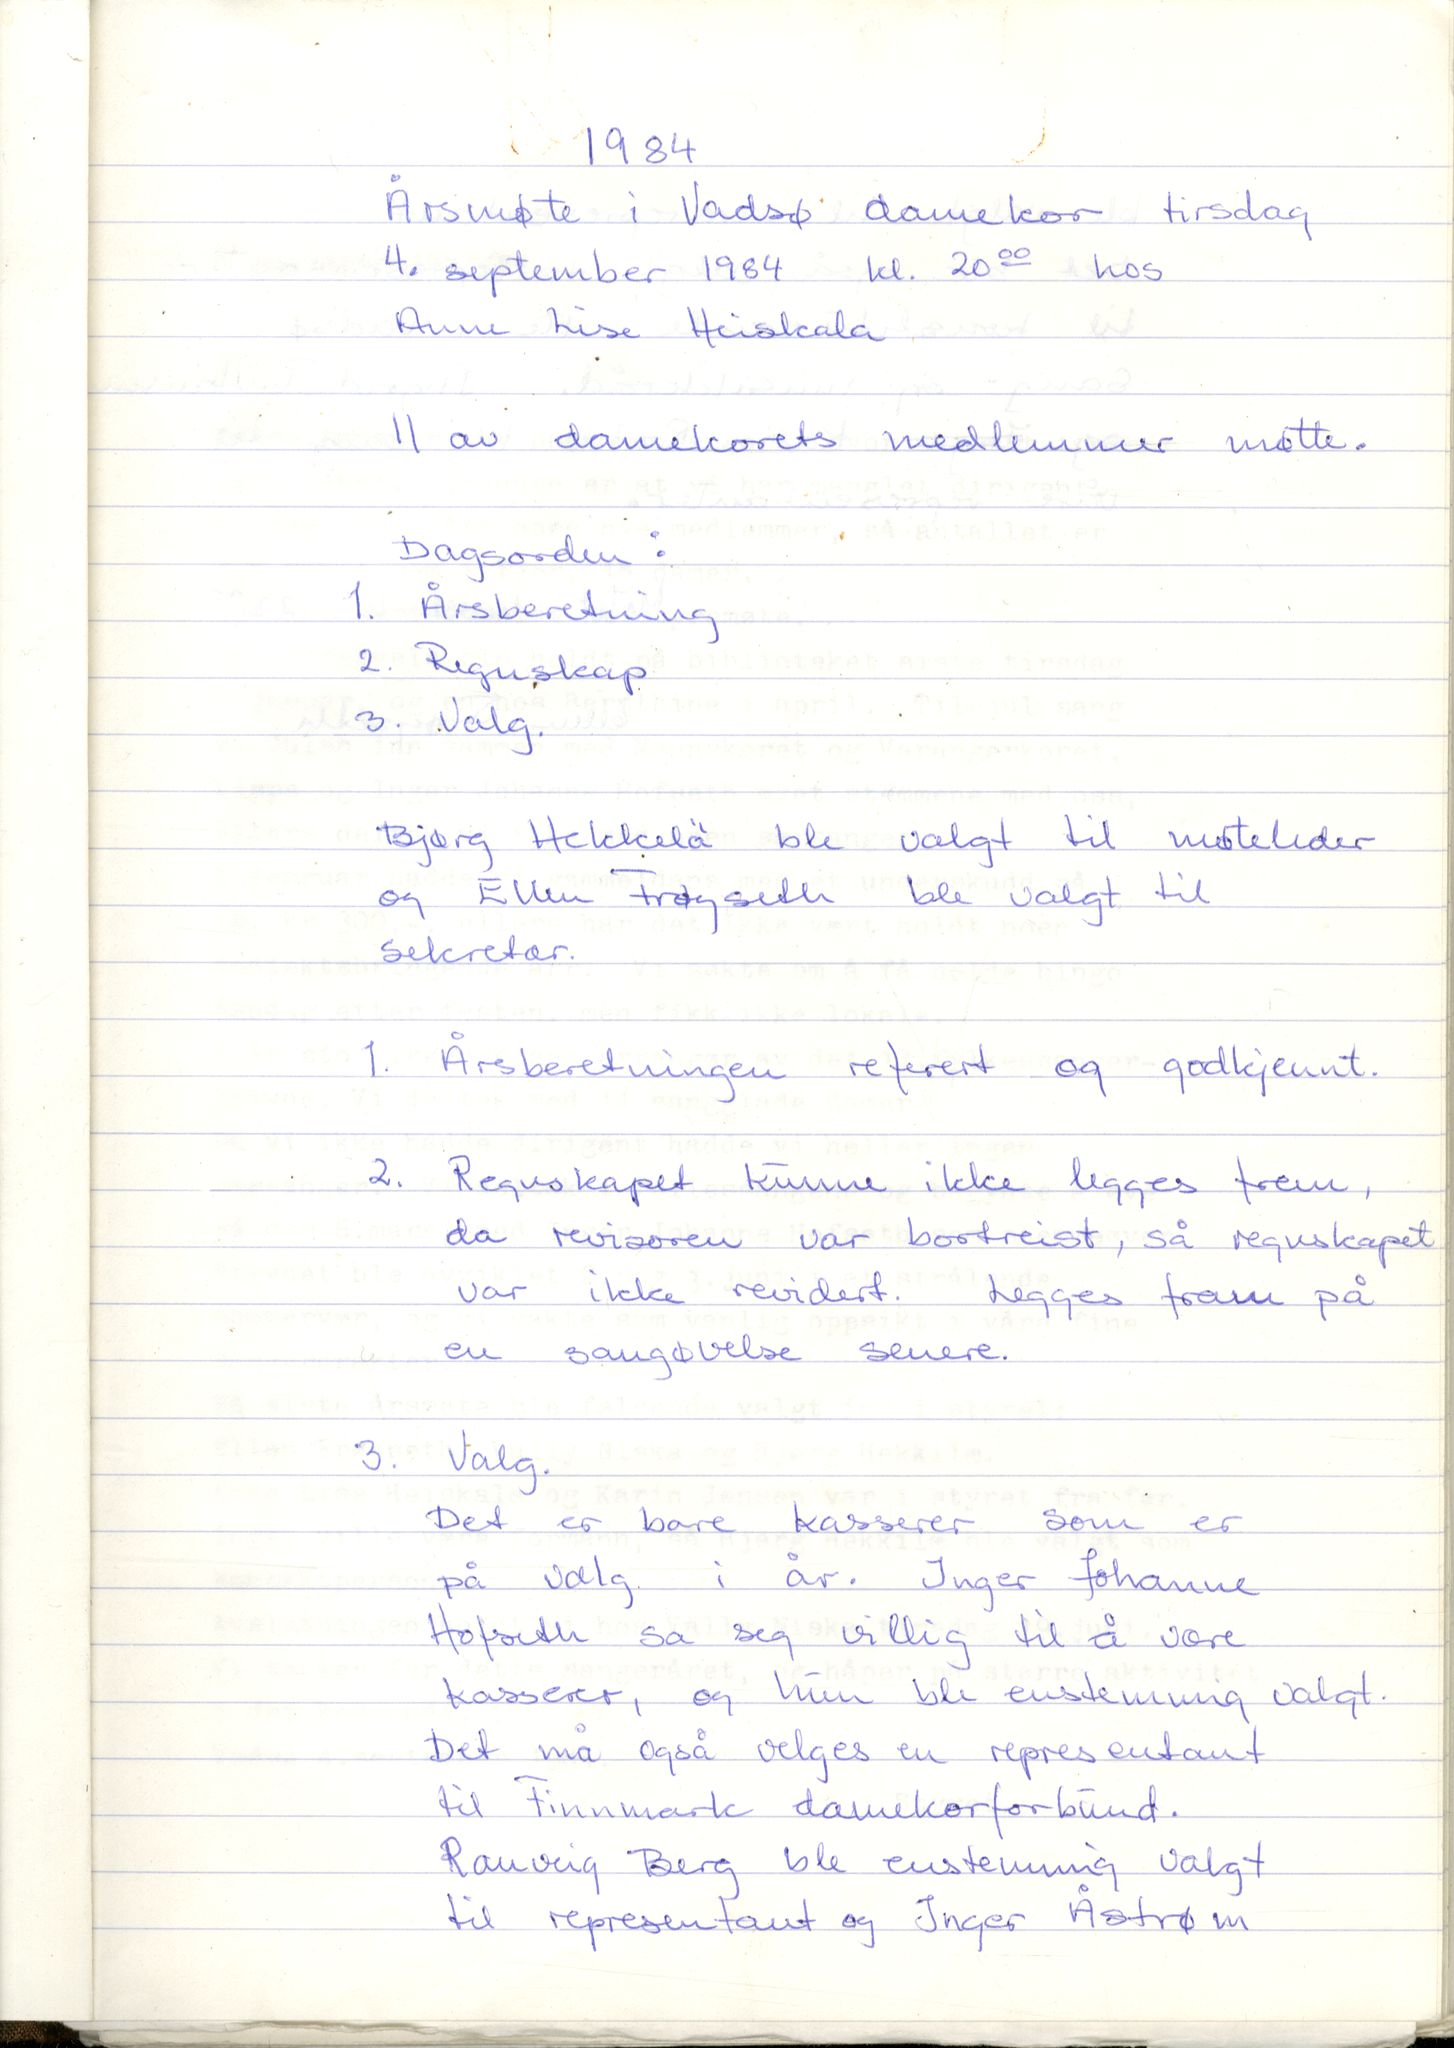 1984
Årsmøte i Vadsø damekor tirsdag
4. september 1984 kl. 20⁰⁰ hos
Anne Lise Heiskala
11 av damekorets medlemmer møtte.
Dagsorden:
1. Årsberetning
2. Regnskap
3. Valg.
Bjørg Hekkelä ble valgt til møteleder
og Ellen Frøyseth ble valgt til
sekretær.
1. Årsberetningen referert og godkjennt.
2. Regnskapet kunne ikke legges frem,
da revisoren var bortreist, så regnskapet
var ikke revidert. Legges fram på
en sangøvelse senere.
3. Valg.
Det er bare kasserer som er
på valg i år. Inger Johanne
Hofseth sa seg villig til å være
kasserer, og hun ble enstemmig valgt.
Det må også velges en representant
til Finnmark damekorforbund.
Ranveig Berg ble enstemmig valgt
til representant og Inger Åstrøm